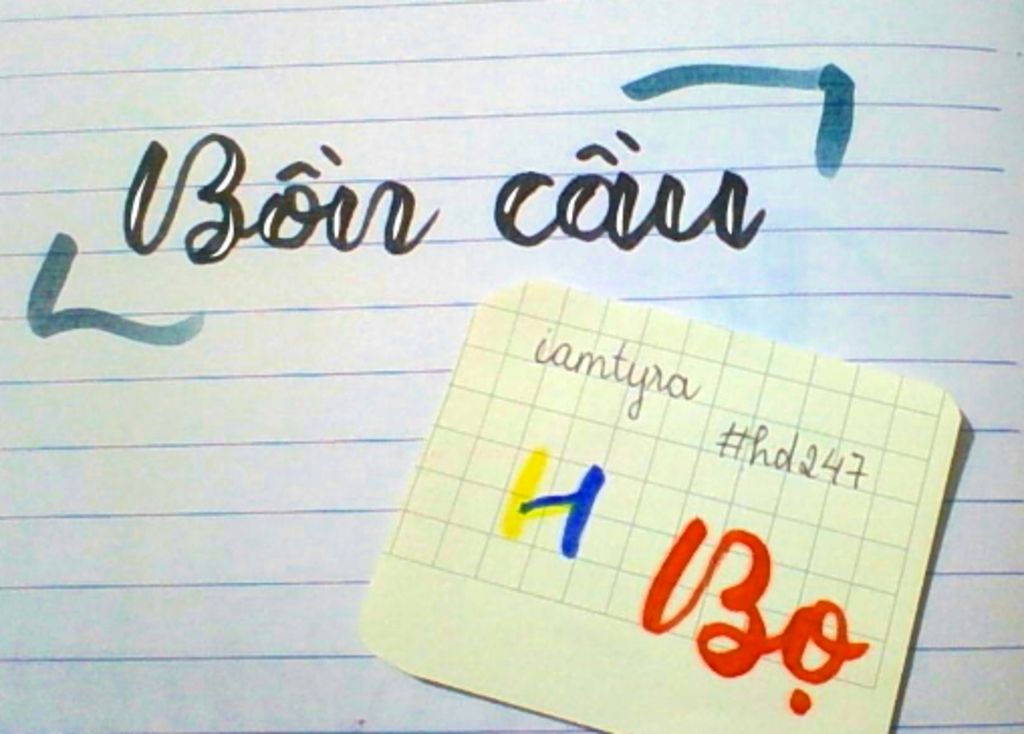 Bồn cầu
iamtyra
#hd247
H
Bọ